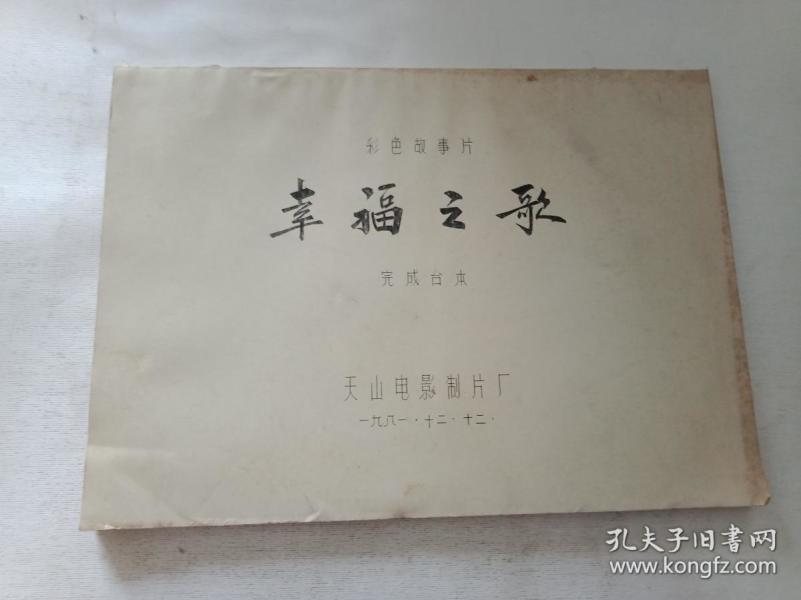 彩色故事片
幸福之歌
完成台本
天山电影制片厂
一九八一·十二·十二·
孔夫子旧書网
www.kongfz.com